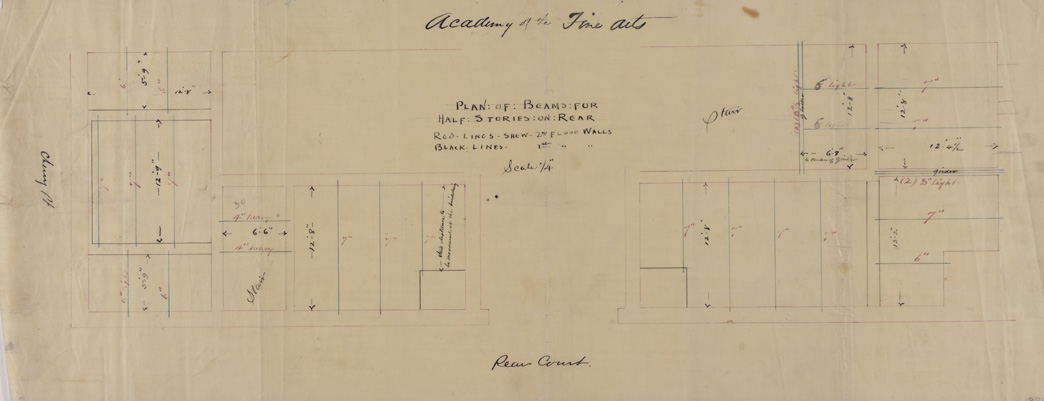 Academy of the Fine Arts
PLAN: OF: BEAMS: FOR
HALF: STORIES: ON: REAR
RED. LINES. SHOW. 2nd FLOOR WALLS
BLACK. LINES. 1st " "
Scale 1/4"
Cherry St
5'.9"
12'.8"
6"
12'.9"
7"
7"
5'.9"
6" light
6"
9" heavy
6'.6"
9" heavy
Stair
12'.8"
7"
this distance to
be measured at the building
Stair
6 light
12'.8"
6'.8"
to center of girder
7"
12'.8"
7"
12'.4 1/2"
girder
(2) 8" light.
12'.8"
7"
7"
6"
Rear Court.